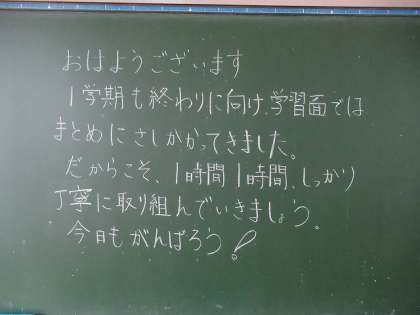 おはようございます
1学期も終わりに向け、学習面では
まとめにさしかかってきました。
だからこそ、1時間1時間、しっかり
丁寧に取り組んでいきましょう。
今日もがんばろう!